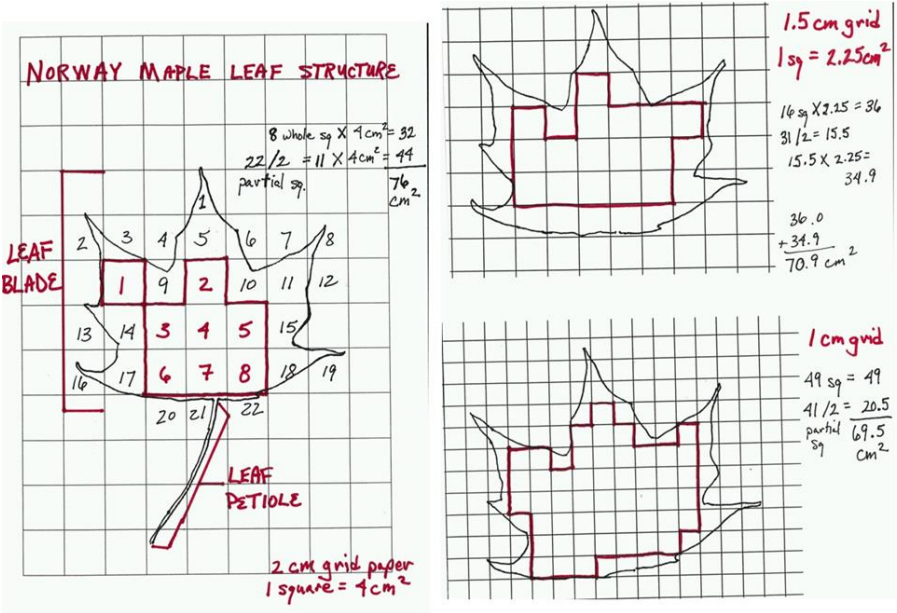 NORWAY MAPLE LEAF STRUCTURE
8 whole sq X 4 cm² = 32
22/2 = 11 X 4cm² = 44
partial sq.
76
cm²
1
2 3 4 5 6 7 8
1 9 2 10 11 12
13 14 3 4 5 15
16 17 6 7 8 18 19
20 21 22
LEAF
BLADE
LEAF
PETIOLE
2 cm grid paper
1 square = 4 cm²
1.5 cm grid
1 sq = 2.25cm²
16 sq X 2.25 = 36
31/2 = 15.5
15.5 X 2.25 =
34.9
36.0
+34.9
70.9 cm²
1 cm grid
49 sq = 49
41/2 = 20.5
partial
sq
69.5
cm²